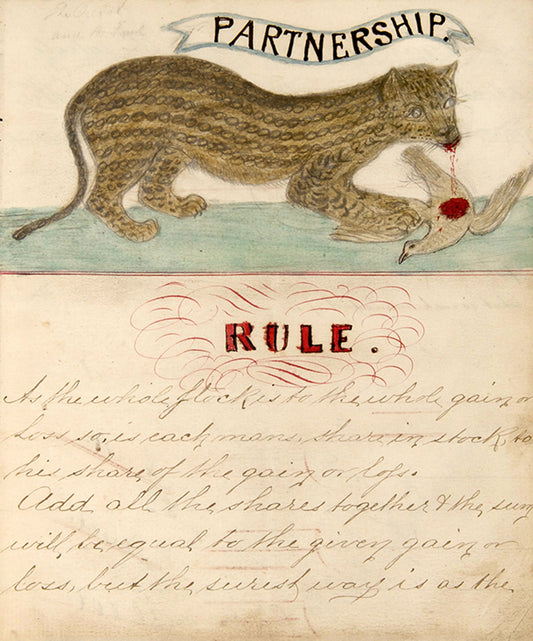 PARTNERSHIP.
RULE.
As the whole stock is to the whole gain or
loss, so is each mans, share in stock, to
his share of the gain or loss.
Add all the shares together & the sum
will be equal to the given gain or
loss, but the surest way is as the